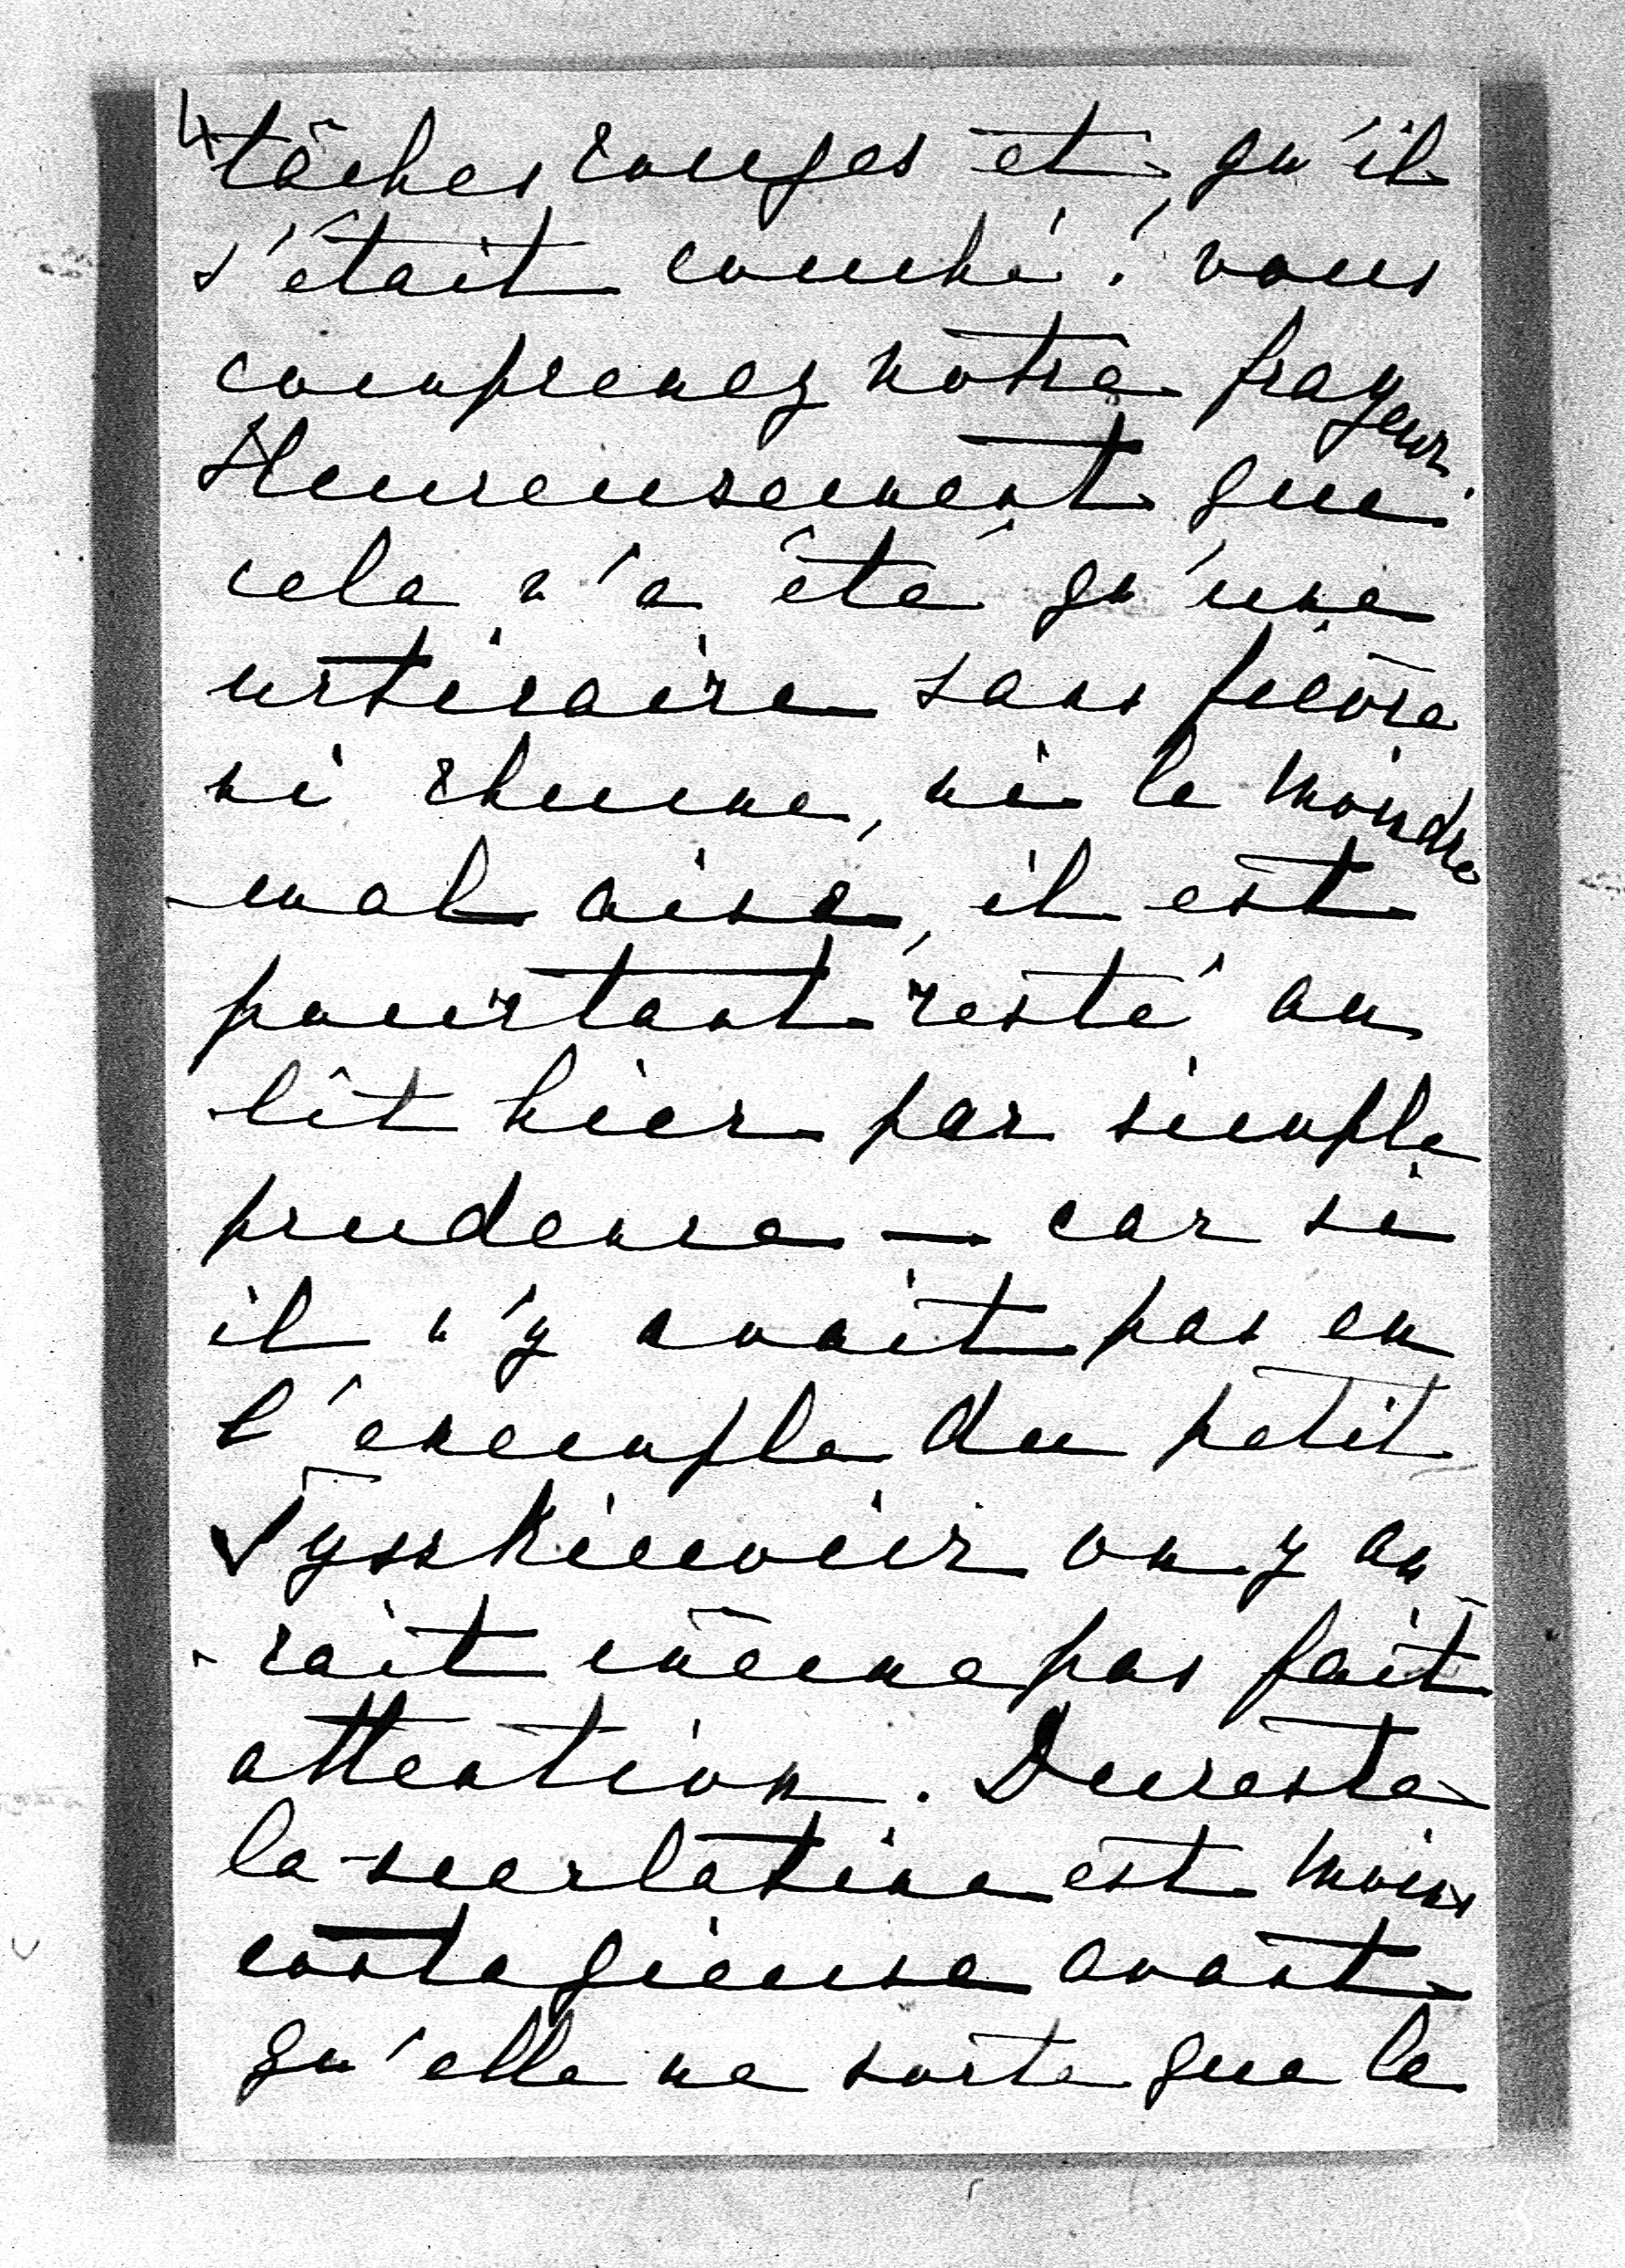 4 tâches rouges et qu'il
s'était couché! vous
comprenez notre frayeur
Heureusement que
cela n'a été qu'une
urticaire sans fièvre
ni rhume, ni le moindre
mal aise, il est
pourtant resté au
lit hier par simple
prudence — car si
il n'y avait pas eu
l'exemple du petit
on y au
-rait même pas fait
attention. Dureste
la scarlatine est moins
contagieuse avant
qu'elle ne sorte que la